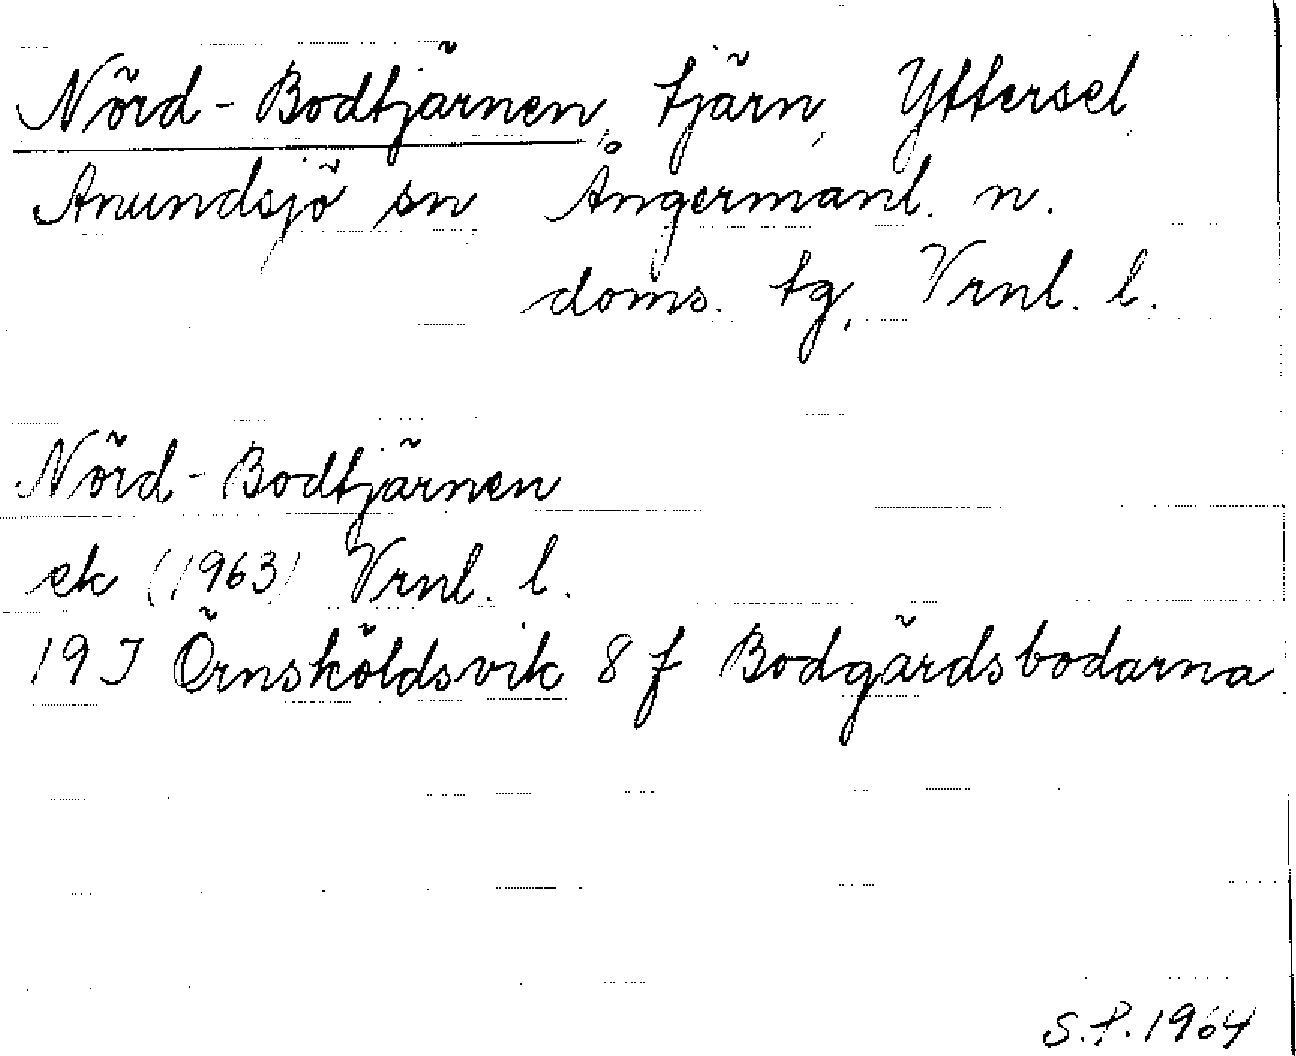 Nörd-Bodtjärnen, tjärn, Yttersel
Anundsjö sn Ångermanl. n.
doms. tg, Vrnl. l.
Nörd-Bodtjärnen
ek (1963) Vrnl. l.
19 I Örnsköldsvik 8 f Bodgärdsbodarna
S.P. 1964